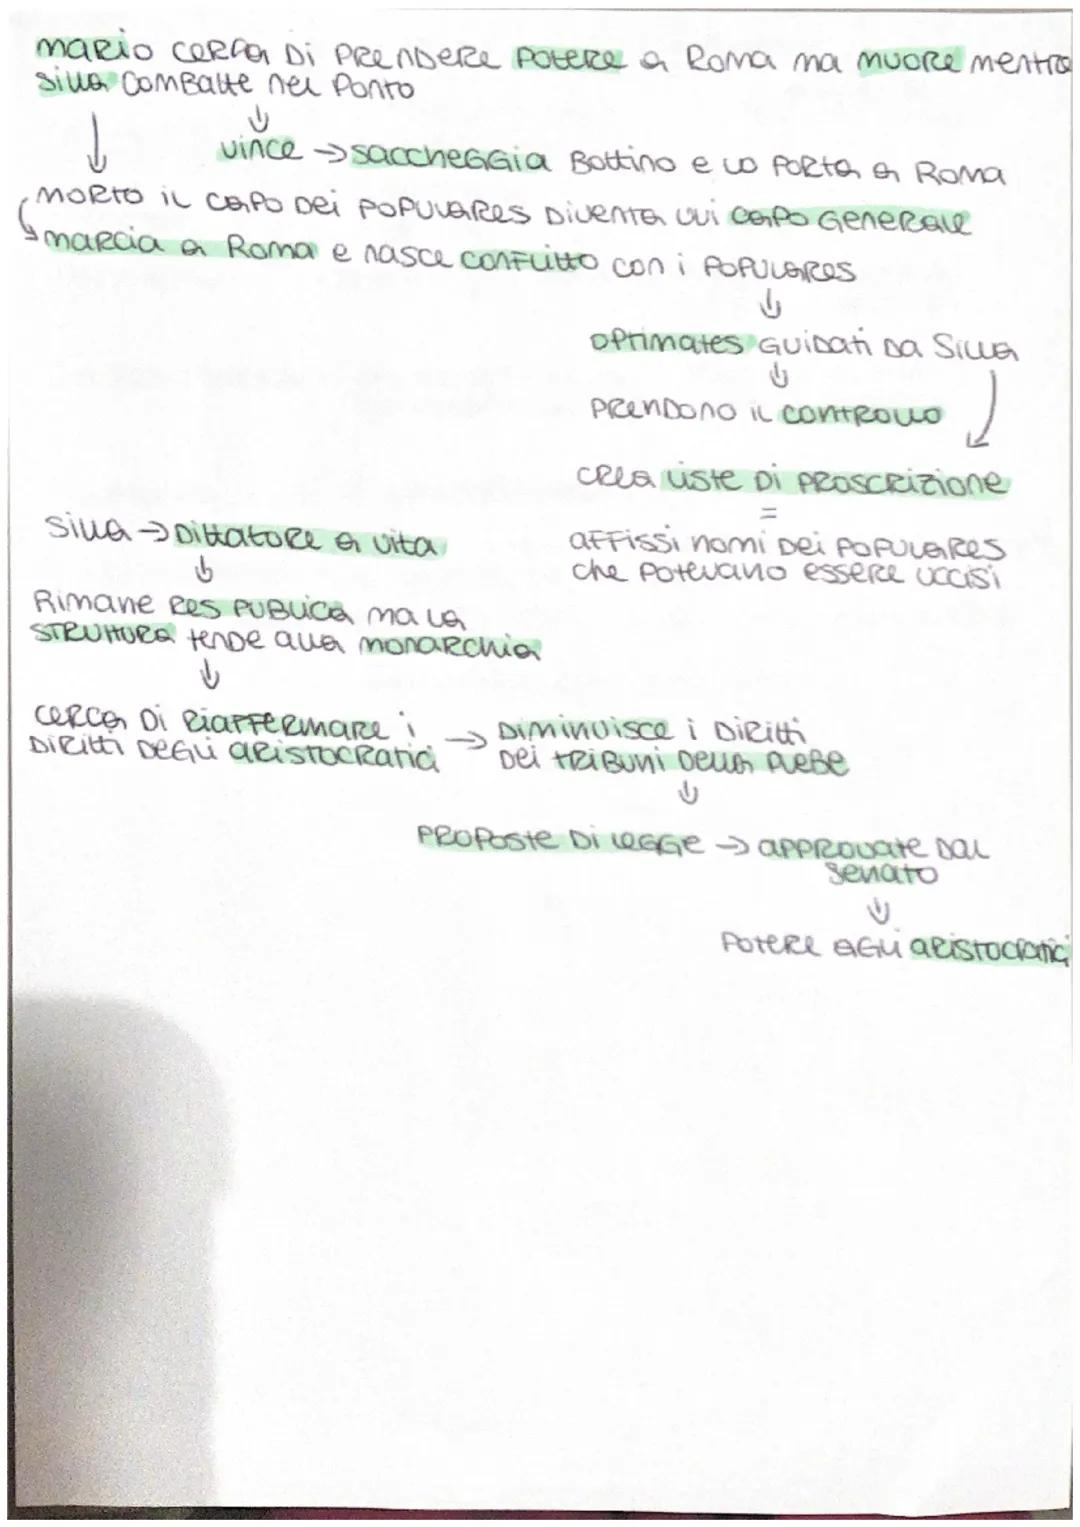 mario cerca di prendere potere a Roma ma muore mentre
Silla combatte nel Ponto
↓
↓
vince → saccheggia bottino e lo porta a Roma
morto il capo dei populares diventa lui capo generale
↳ marcia a Roma e nasce conflitto con i populares
↓
optimates guidati da Silla
↓
prendono il controllo
↓
crea liste di proscrizione
=
Silla → dittatore a vita
affissi nomi dei populares
che potevano essere uccisi
↓
Rimane res publica ma la
struttura tende alla monarchia
↓
cerca di riaffermare i → diminuisce i diritti
diritti degli aristocratici dei tribuni della plebe
↓
proposte di legge → approvate dal
Senato
↓
potere agli aristocratici